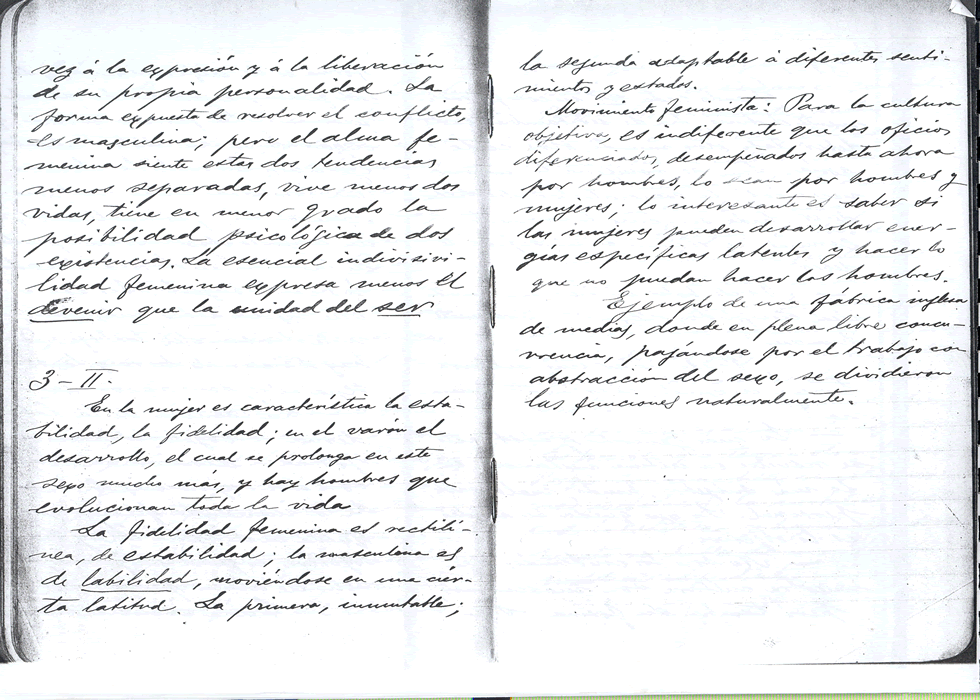 vez á la expresión y á la liberación
de su propia personalidad. La
forma expuesta de resolver el conflicto,
es masculina; pero el alma fe-
menina siente estas dos tendencias
menos separadas, vive menos dos
vidas, tiene en menor grado la
posibilidad psicológica de dos
existencias. La esencial indivisivi-
lidad femenina expresa menos el
devenir que la unidad del ser
3-II.
En la mujer es característica la esta-
bilidad, la fidelidad; en el varón el
desarrollo, el cual se prolonga en este
sexo mucho más, y hay hombres que
evolucionan toda la vida
La fidelidad femenina es rectilí-
nea, de estabilidad; la masculina es
de labilidad, moviéndose en una cier-
ta latitud. La primera, inmutable;
la segunda adaptable á diferentes senti-
mientos y estados.
Movimiento feminista: Para la cultura
objetiva, es indiferente que los oficios
diferenciados, desempeñados hasta ahora
por hombres, lo sean por hombres y
mujeres; lo interesante es saber si
las mujeres pueden desarrollar ener-
gías específicas latentes y hacer lo
que no puedan hacer los hombres.
Ejemplo de una fábrica inglesa
de medias, donde en plena libre concu-
rrencia, pagándose por el trabajo con
abstracción del sexo, se dividieron
las funciones naturalmente.